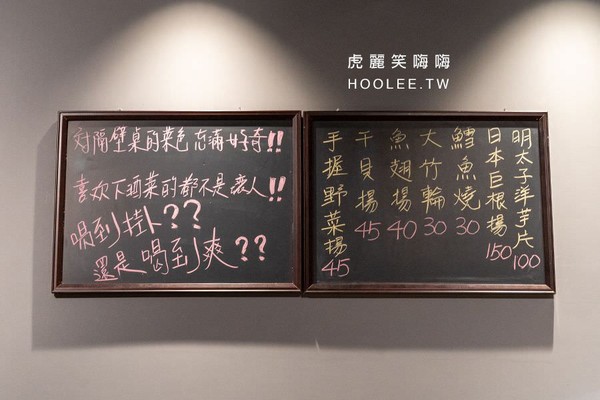 虎麗笑嗨嗨
HOOLEE.TW
對隔壁桌的菜色充滿好奇!!
喜欢下酒菜的都不是壞人!!
喝到掛??
還是喝到爽??
明太子洋芋片100
日本巨根揚150
鱈魚燒30
大竹輪30
魚翅揚40
干貝揚45
手握野菜揚45